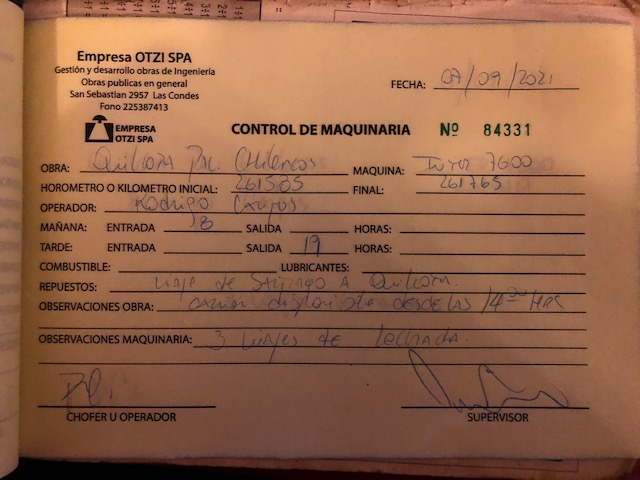 Empresa OTZI SPA
Gestión y desarrollo obras de Ingeniería
Obras publicas en general
San Sebastian 2957 Las Condes
Fono 225387413
EMPRESA
OTZI SPA
FECHA: 07/09/2021
CONTROL DE MAQUINARIA Nº 84331
OBRA: MAQUINA: 7600
HOROMETRO O KILOMETRO INICIAL: 261585 FINAL: 261765
OPERADOR: Rodrigo Campos
MAÑANA: ENTRADA 8 SALIDA HORAS:
TARDE: ENTRADA SALIDA 19 HORAS:
COMBUSTIBLE: LUBRICANTES:
REPUESTOS: viaje de Santiago A
OBSERVACIONES OBRA: camion disponible desde las 14:00 HRS
OBSERVACIONES MAQUINARIA: 3 viajes de
CHOFER U OPERADOR SUPERVISOR